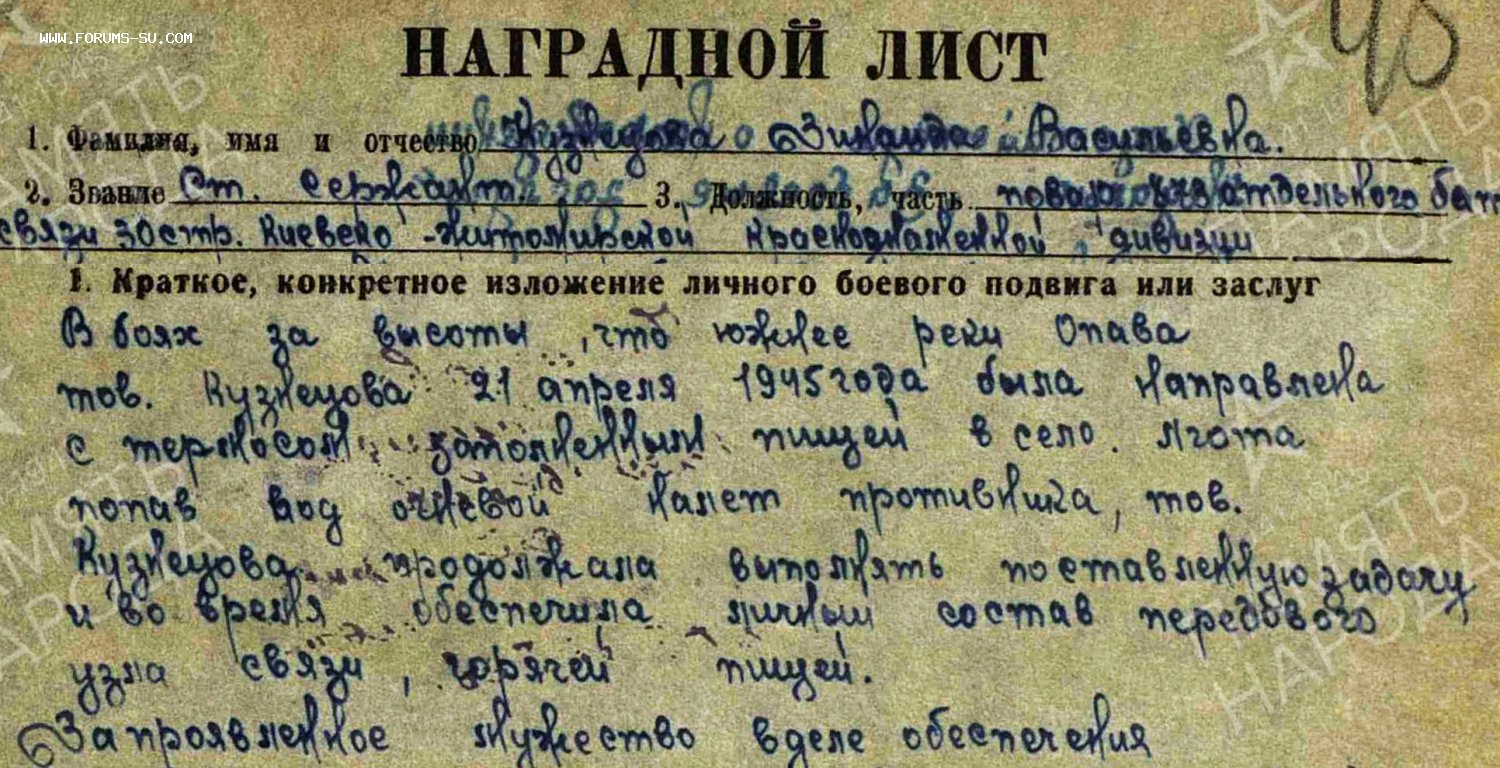 WWW.FORUMS-SU.COM
НАГРАДНОЙ ЛИСТ
1. Фамилия, имя и отчество Кузнецова Зинаида Васильевна.
2. Звание Ст. Сержант. 3. Должность, часть повар отдельного бат
связи 30 стр. Киевско-Житомирской Краснознаменной дивизии
1. Краткое, конкретное изложение личного боевого подвига или заслуг
В боях за высоты, что южнее реки Опава
тов. Кузнецова 21 апреля 1945 года была направлена
с термосом заполненным пищей в село. Лгота
попав под огневой налет противника, тов.
Кузнецова продолжала выполнять поставленную задачу
и во время обеспечила личный состав передового
узла связи, горячей пищей.
За проявленное мужество в деле обеспечения
ПАМЯТЬ НАРОДА